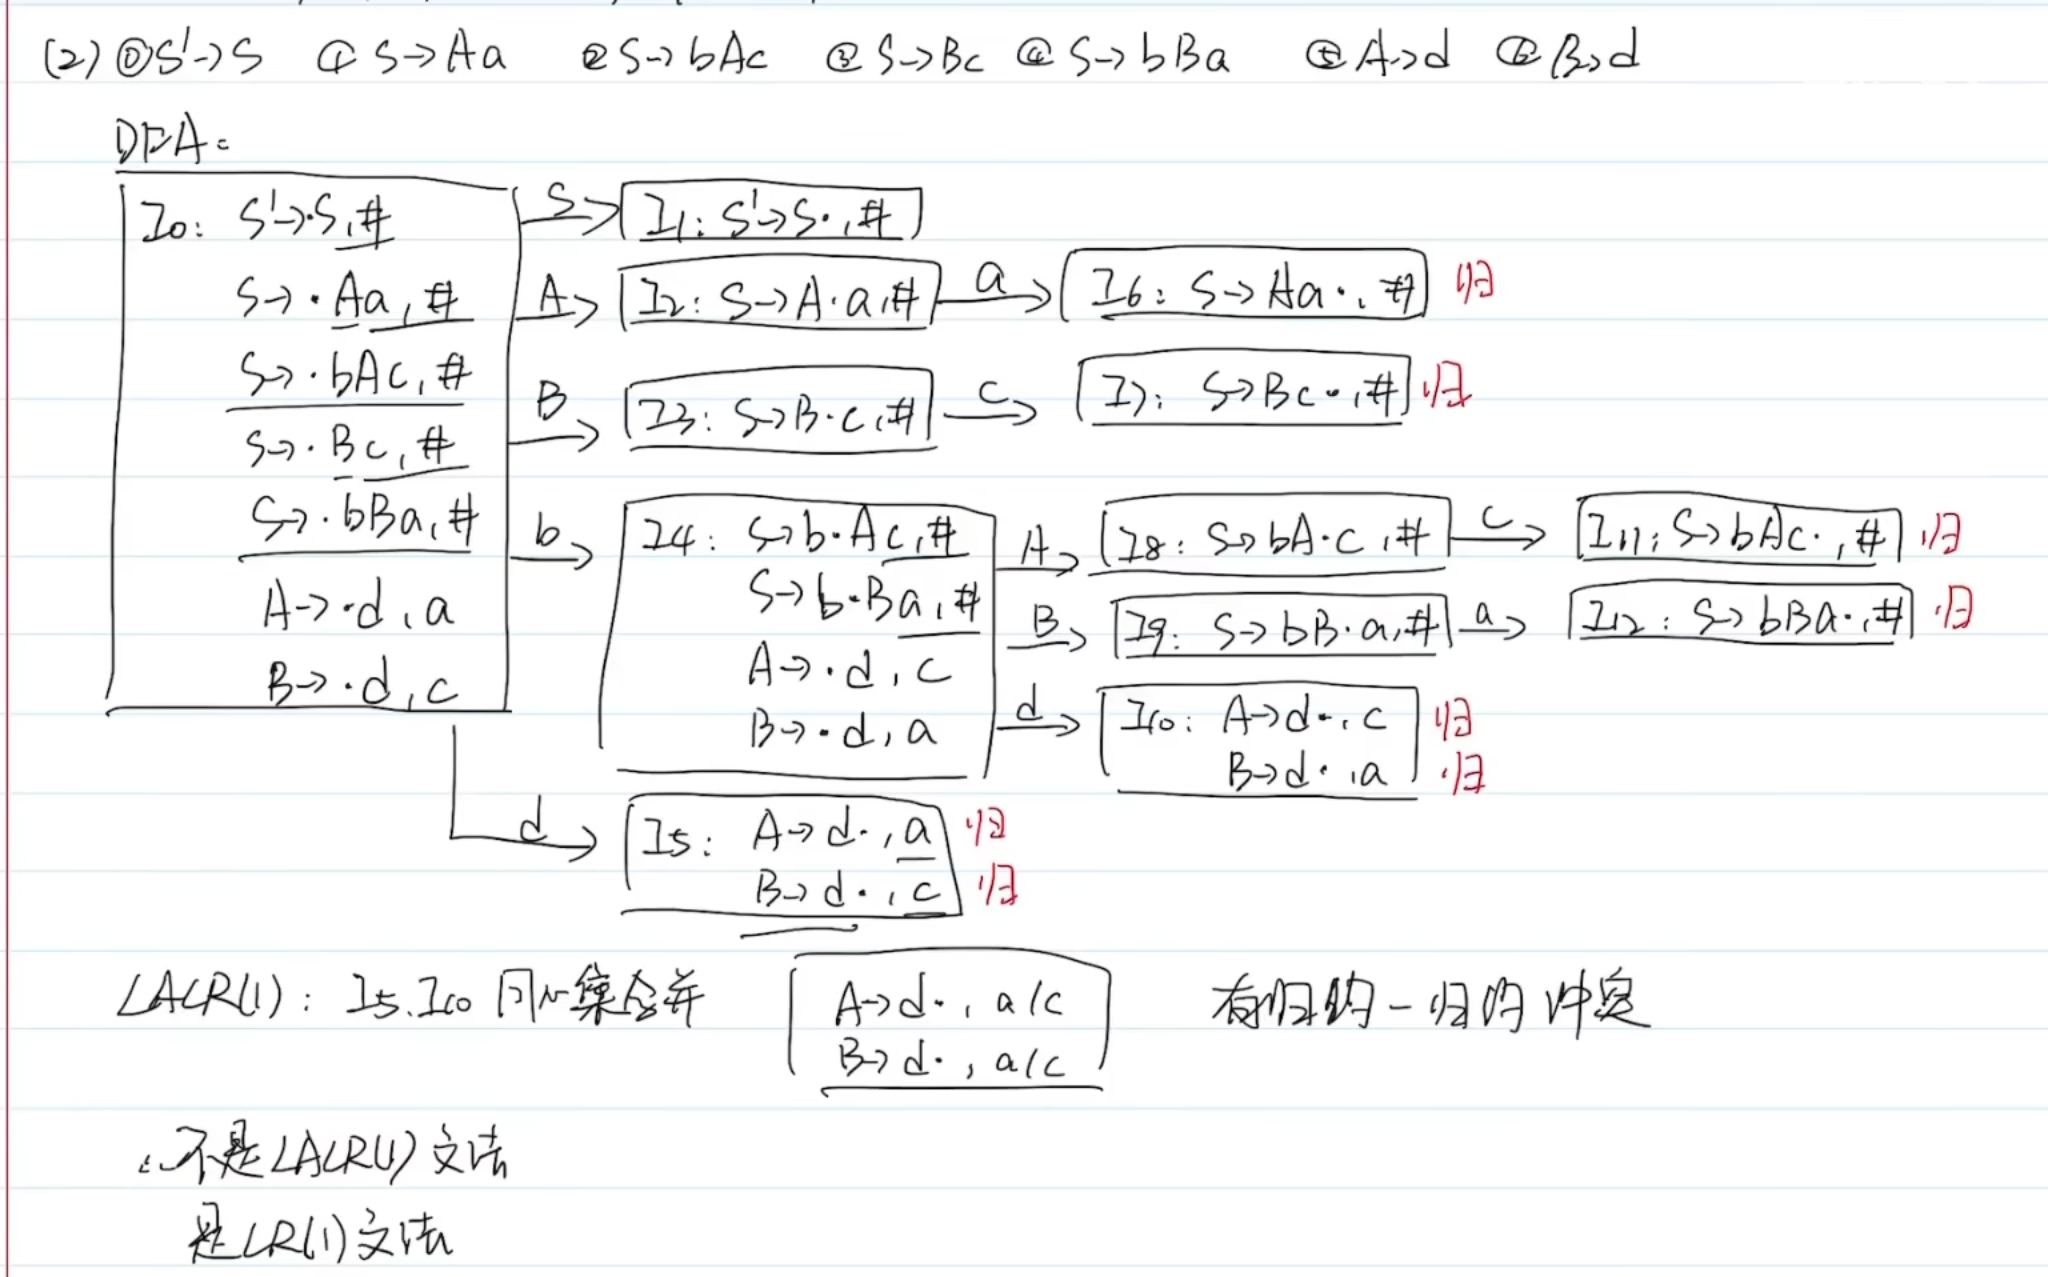 (2) ⓪S'→S ①S→Aa ②S→bAc ③S→Bc ④S→bBa ⑤A→d ⑥B→d
DFA:
I0: S'→·S,#
S→·Aa,#
S→·bAc,#
S→·Bc,#
S→·bBa,#
A→·d,a
B→·d,c
S
I1: S'→S·,#
A
I2: S→A·a,#
a
I6: S→Aa·,# 归
B
I3: S→B·c,#
c
I7: S→Bc·,# 归
b
I4: S→b·Ac,#
S→b·Ba,#
A→·d,c
B→·d,a
A
I8: S→bA·c,#
c
I11: S→bAc·,# 归
B
I9: S→bB·a,#
a
I12: S→bBa·,# 归
d
I10: A→d·,c 归
B→d·,a 归
d
I5: A→d·,a 归
B→d·,c 归
LALR(1): I5.I10 同心集合并
A→d·,a/c
B→d·,a/c
有归约-归约冲突
∴不是LALR(1)文法
是LR(1)文法